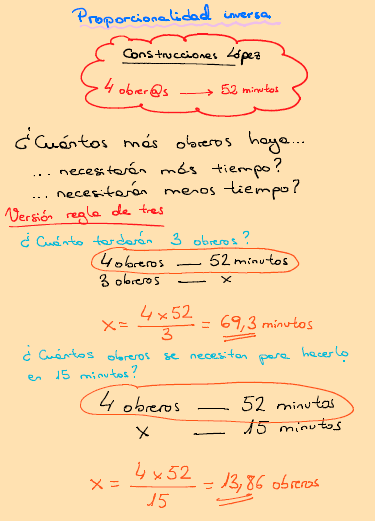 Proporcionalidad inversa
Construcciones López
4 obrer@s → 52 minutos
¿Cuántos más obreros haya...
... necesitarán más tiempo?
... necesitarán menos tiempo?
Versión regla de tres
¿Cuánto tardarán 3 obreros?
4 obreros — 52 minutos
3 obreros — x
x = 4 x 52 / 3 = 69,3 minutos
¿Cuántos obreros se necesitan para hacerlo
en 15 minutos?
4 obreros — 52 minutos
x — 15 minutos
x = 4 x 52 / 15 = 13,86 obreros